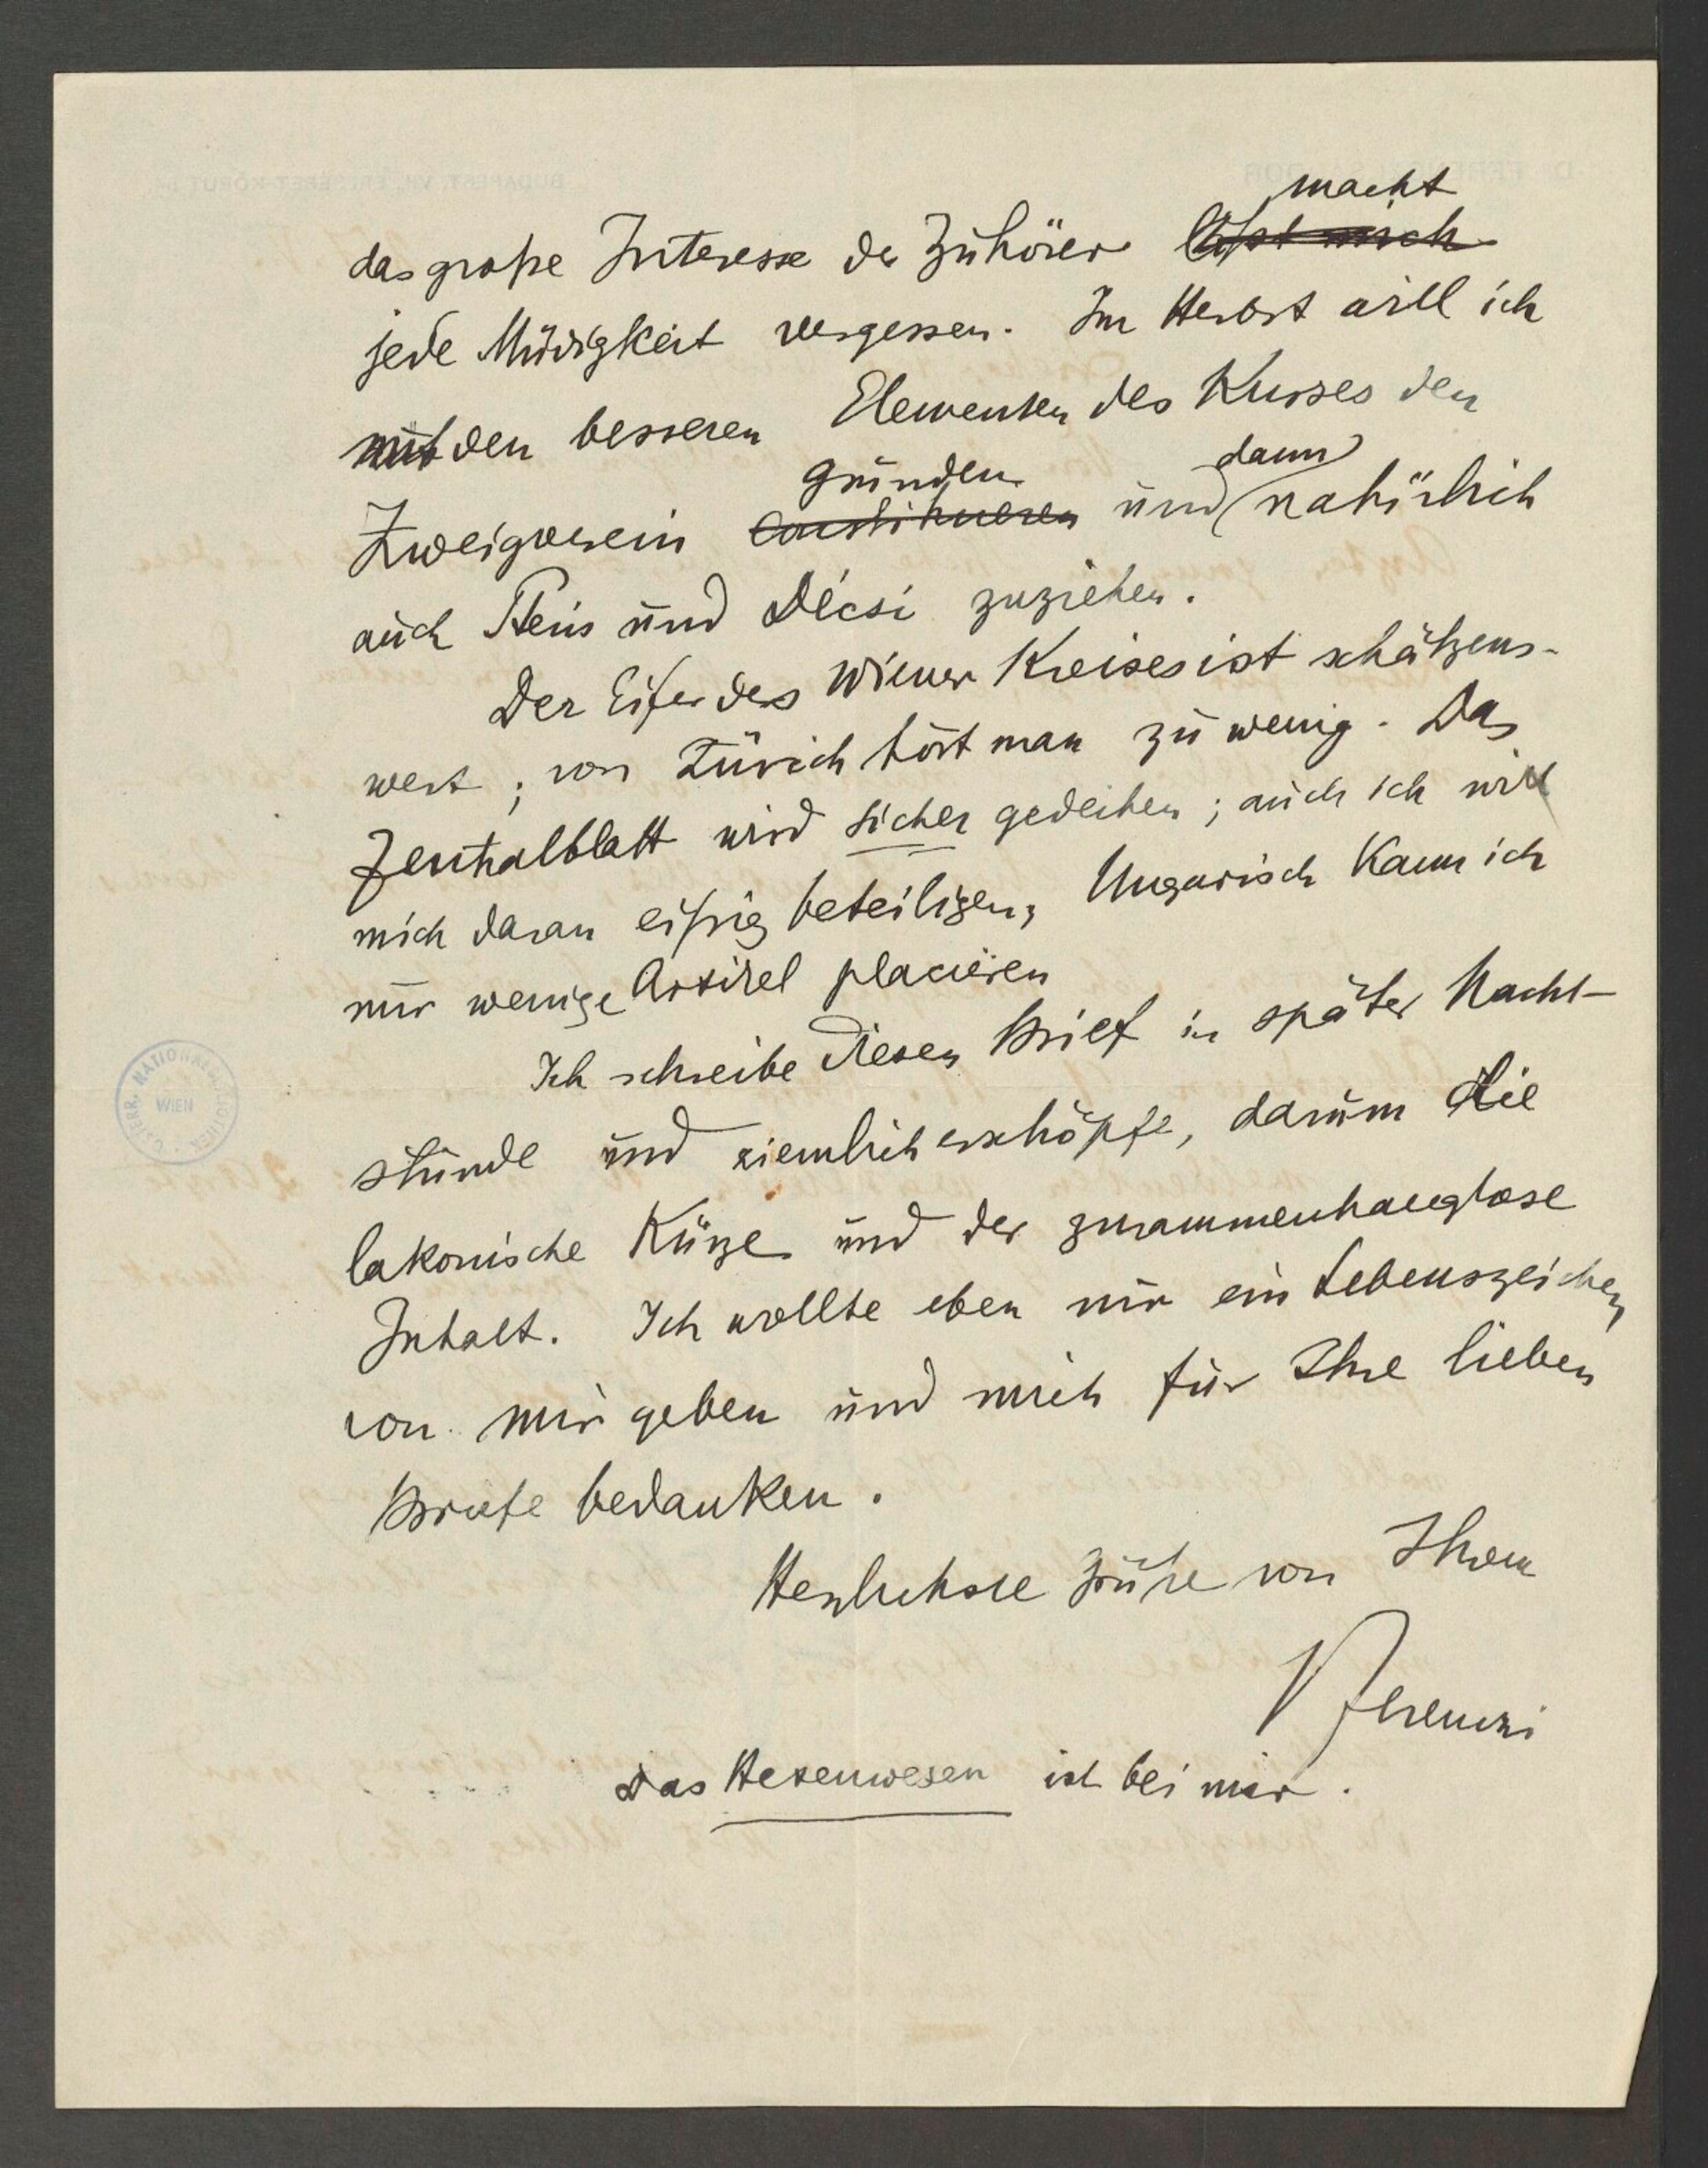 macht
das große Interesse der Zuhörer läßt mich
jede Müdigkeit vergessen. Im Herbst will ich
mit den besseren Elementen des Kurses den
gründen dann
Zweigverein constituieren und natürlich
auch Stein und Décsi zuziehen.
Der Eifer des Wiener Kreises ist schätzens-
wert; von Zürich hört man zu wenig. Das
Zentralblatt wird sicher gedeihen; auch ich will
mich daran eifrig beteiligen, Ungarisch kann ich
nur wenige Artikel placieren
Ich schreibe diesen Brief in später Nacht-
stunde und ziemlich erschöpft, darum die
lakonische Kürze und der zusammenhanglose
Inhalt. Ich wollte eben nur ein Lebenszeichen
von mir geben und mich für Ihre lieben
Briefe bedanken.
Herzlichste Grüße von Ihrem
Ferenczi
Das Hexenwesen ist bei mir.
WIEN